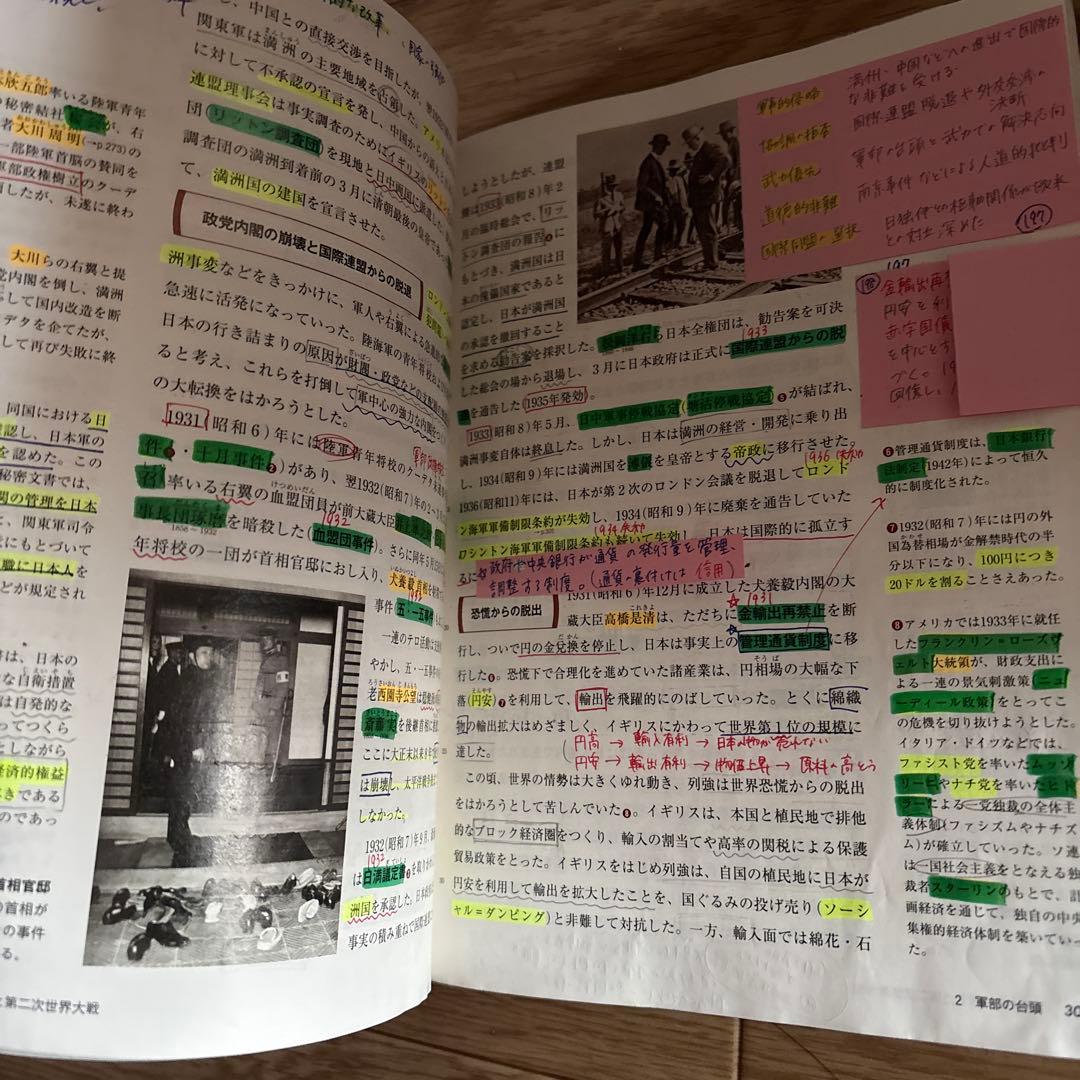 し、中国との直接交渉を目指したが、
関東軍は満洲の主要地域を占領した。
に対して不承認の宣言を発し、中国からの
連盟理事会は事実調査のためにイギリスの
団（リットン調査団）を現地と日中両国に派遣した
調査団の満洲到着前の3月に清朝最後の皇帝
て、満洲国の建国を宣言させた。
政党内閣の崩壊と国際連盟からの脱退
洲事変などをきっかけに、軍人や右翼による急進的
急速に活発になっていった。陸海軍の青年将校
日本の行き詰まりの原因が財閥・政党などの支配層
ると考え、これらを打倒して軍中心の強力な内閣をつくり
の大転換をはかろうとした。
1931（昭和6）年には陸軍青年将校のクーデタ未遂
件❶・十月事件❷）があり、翌1932（昭和7）年の2〜3
率いる右翼の血盟団員が前大蔵大臣井上準之助
事長団琢磨を暗殺した（血盟団事件）。さらに同年5月15
1858〜1932
1932
年将校の一団が首相官邸におし入り、
犬養毅首相を
事件（五・一五事件
一連のテロ活動は
やかし、五・一五事件の
老西園寺公望は
斎藤実を後継首相に
ここに大正末以来8年
は崩壊し、太平洋戦争後
しなかった。
1932（昭和7）年9月、
1932
は日満議定書❸を取り
洲国を承認した。
事実の積み重ねで国際連盟
欣五郎率いる陸軍青年
の秘密結社桜会が、右
者大川周明（→p.273）の
一部陸軍首脳の賛同を
軍部政権樹立のクーデ
画したが、未遂に終わ
大川らの右翼と提
党内閣を倒し、満洲
応して国内改造を断
ーデタを企てたが、
して再び失敗に終
同国における日
認し、日本軍の
を認めた。この
秘密文書では、
関の管理を日本
、関東軍司令
にもとづいて
職に日本人を
どが規定され
は、日本の
な自衛措置
は自発的な
ってつくら
としながら
経済的権益
べきである
のであっ
首相官邸
の首相が
の事件
る。
第二次世界大戦
軍事的侵略 満州、中国などへの進出で国際的
な非難を受ける
国際連盟脱退や外交交渉の
決断
武力優先 軍部の台頭と武力での解決志向
道徳的非難 南京事件などによる人道的批判
国際同盟の選択 日独伊との枢軸関係が欧米
との対立を深めた
197
197
198
金輸出再
円安を利
赤字国債
を中心とす
回復し、
しようとしたが、連盟
側は1933（昭和8）年2
月の臨時総会で、リッ
トン調査団の報告❹に
もとづき、満洲国は日
本の傀儡国家であると
認定し、日本が満洲国
の承認を撤回すること
を求める勧告案を採択した。松岡洋右ら日本全権団は、勧告案を可決
1933
した総会の場から退場し、3月に日本政府は正式に国際連盟からの脱
退を通告した（1935年発効）。
1933（昭和8）年5月、日中軍事停戦協定（塘沽停戦協定）❺が結ばれ、
満洲事変自体は終息した。しかし、日本は満洲の経営・開発に乗り出
し、1934（昭和9）年には満洲国を溥儀を皇帝とする帝政に移行させた。
1936（失効）
1936（昭和11）年には、日本が第2次のロンドン会議を脱退してロンド
ン海軍軍備制限条約が失効し、1934（昭和9）年に廃棄を通告していた
ワシントン海軍軍備制限条約も続いて失効し、日本は国際的に孤立す
るに
☆政府や中央銀行が通貨の発行量を管理、
調整する制度。（通貨の裏付けは信用）
恐慌からの脱出
1931（昭和6）年12月に成立した犬養毅内閣の大
1931
蔵大臣高橋是清は、ただちに金輸出再禁止を断
行し、ついで円の金兌換を停止し、日本は事実上の管理通貨制度に移
行した❻。恐慌下で合理化を進めていた諸産業は、円相場の大幅な下
落（円安）❼を利用して、輸出を飛躍的にのばしていった。とくに綿織
物の輸出拡大はめざましく、イギリスにかわって世界第1位の規模に
達した。
円高→輸入有利→日本の物が売れない
円安→輸出有利→物価上昇→原料の高とう
この頃、世界の情勢は大きくゆれ動き、列強は世界恐慌からの脱出
をはかろうとして苦しんでいた❽。イギリスは、本国と植民地で排他
的なブロック経済圏をつくり、輸入の割当てや高率の関税による保護
貿易政策をとった。イギリスをはじめ列強は、自国の植民地に日本が
円安を利用して輸出を拡大したことを、国ぐるみの投げ売り（ソーシ
ャル＝ダンピング）と非難して対抗した。一方、輸入面では綿花・石
❻管理通貨制度は、日本銀行
法制定（1942年）によって恒久
的に制度化された。
❼1932（昭和7）年には円の外
国為替相場が金解禁時代の半
分以下になり、100円につき
20ドルを割ることさえあった。
❽アメリカでは1933年に就任
したフランクリン＝ローズヴ
ェルト大統領が、財政支出に
よる一連の景気刺激策（ニュ
ーディール政策）をとってこ
の危機を切り抜けようとした。
イタリア・ドイツなどでは、
ファシスト党を率いたムッソ
リーニやナチ党を率いたヒト
ラーによる一党独裁の全体主
義体制（ファシズムやナチズ
ム）が確立していった。ソ連
は一国社会主義をとなえる独
裁者スターリンのもとで、計
画経済を通じて、独自の中央
集権的経済体制を築いていっ
た。
2 軍部の台頭 30